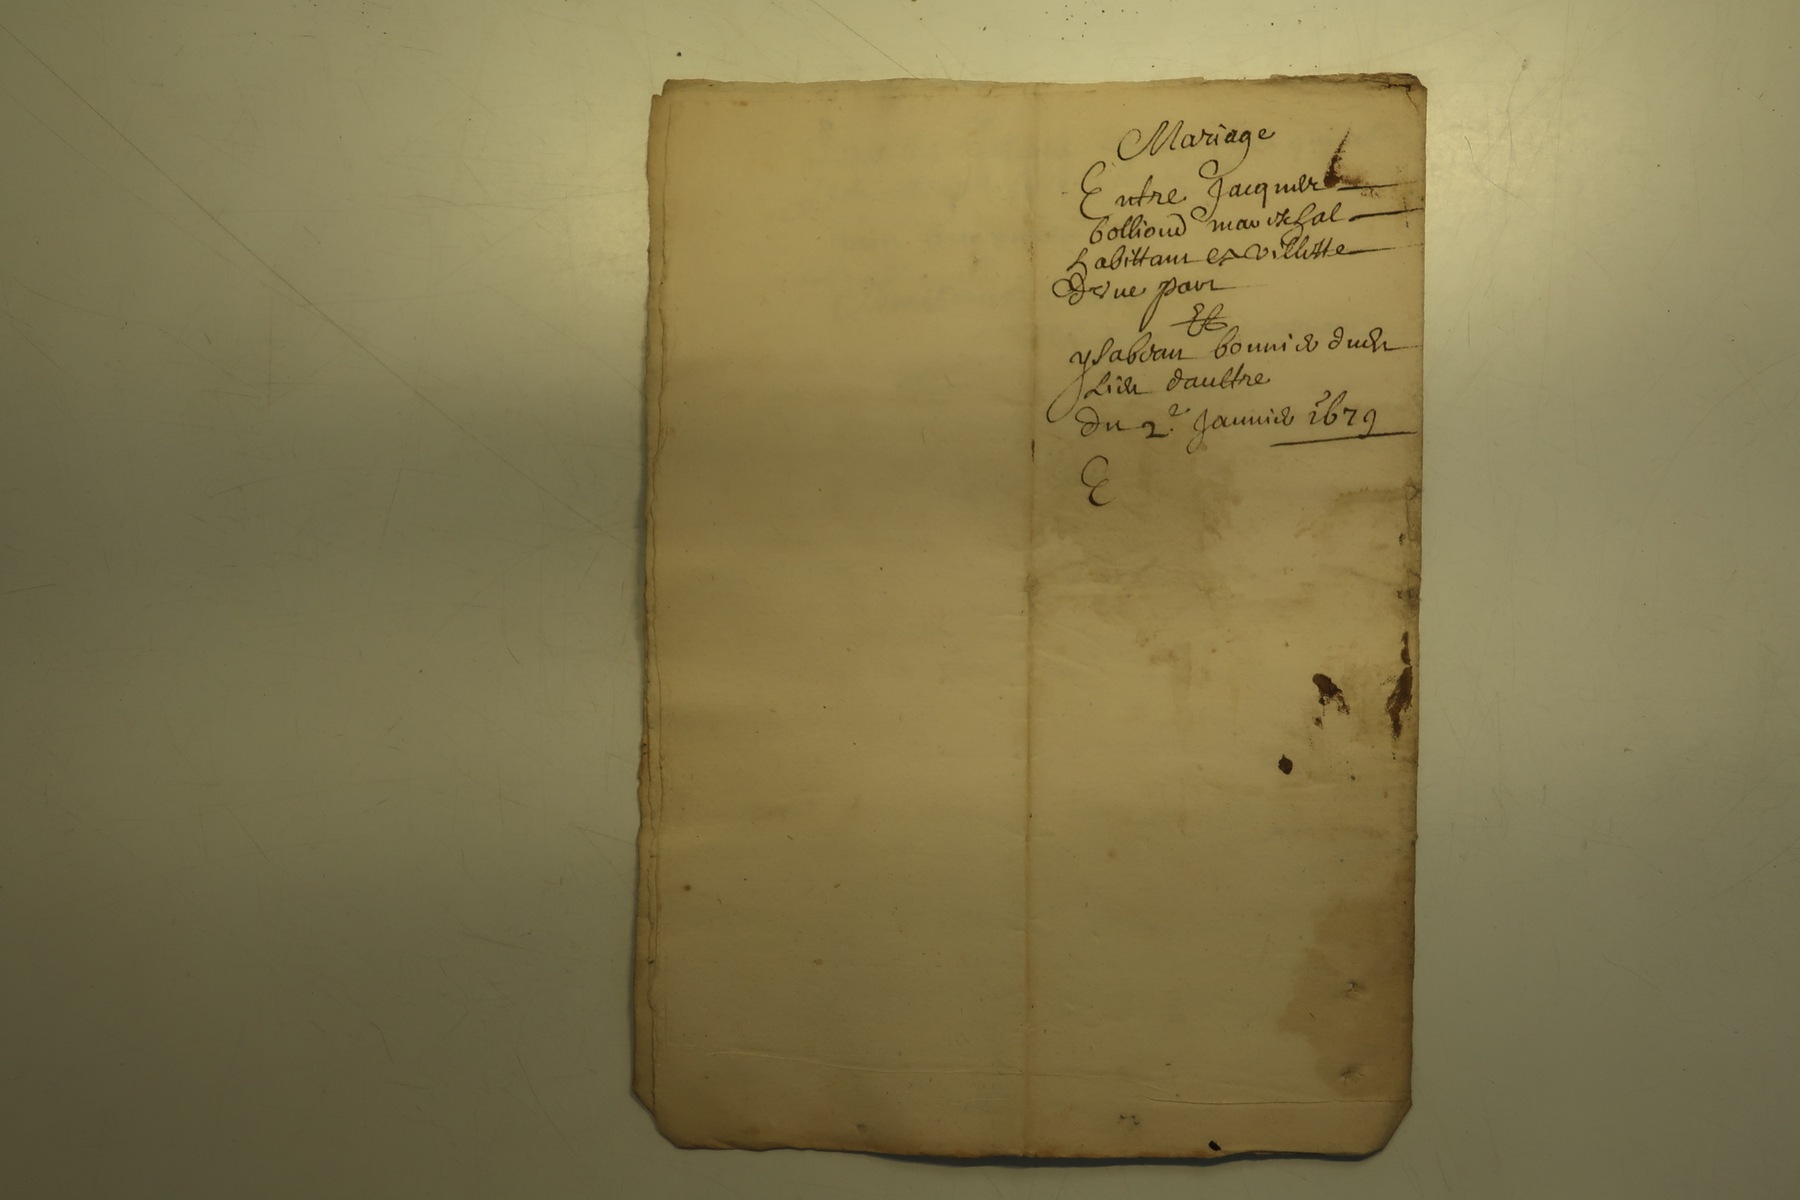 Mariage
Entre Jacques
bolliond mareschal
habittant es villette
d'vne part
Et
ysabeau bonnier dudit
lieu d'aultre
du 2e Januier 1679
E